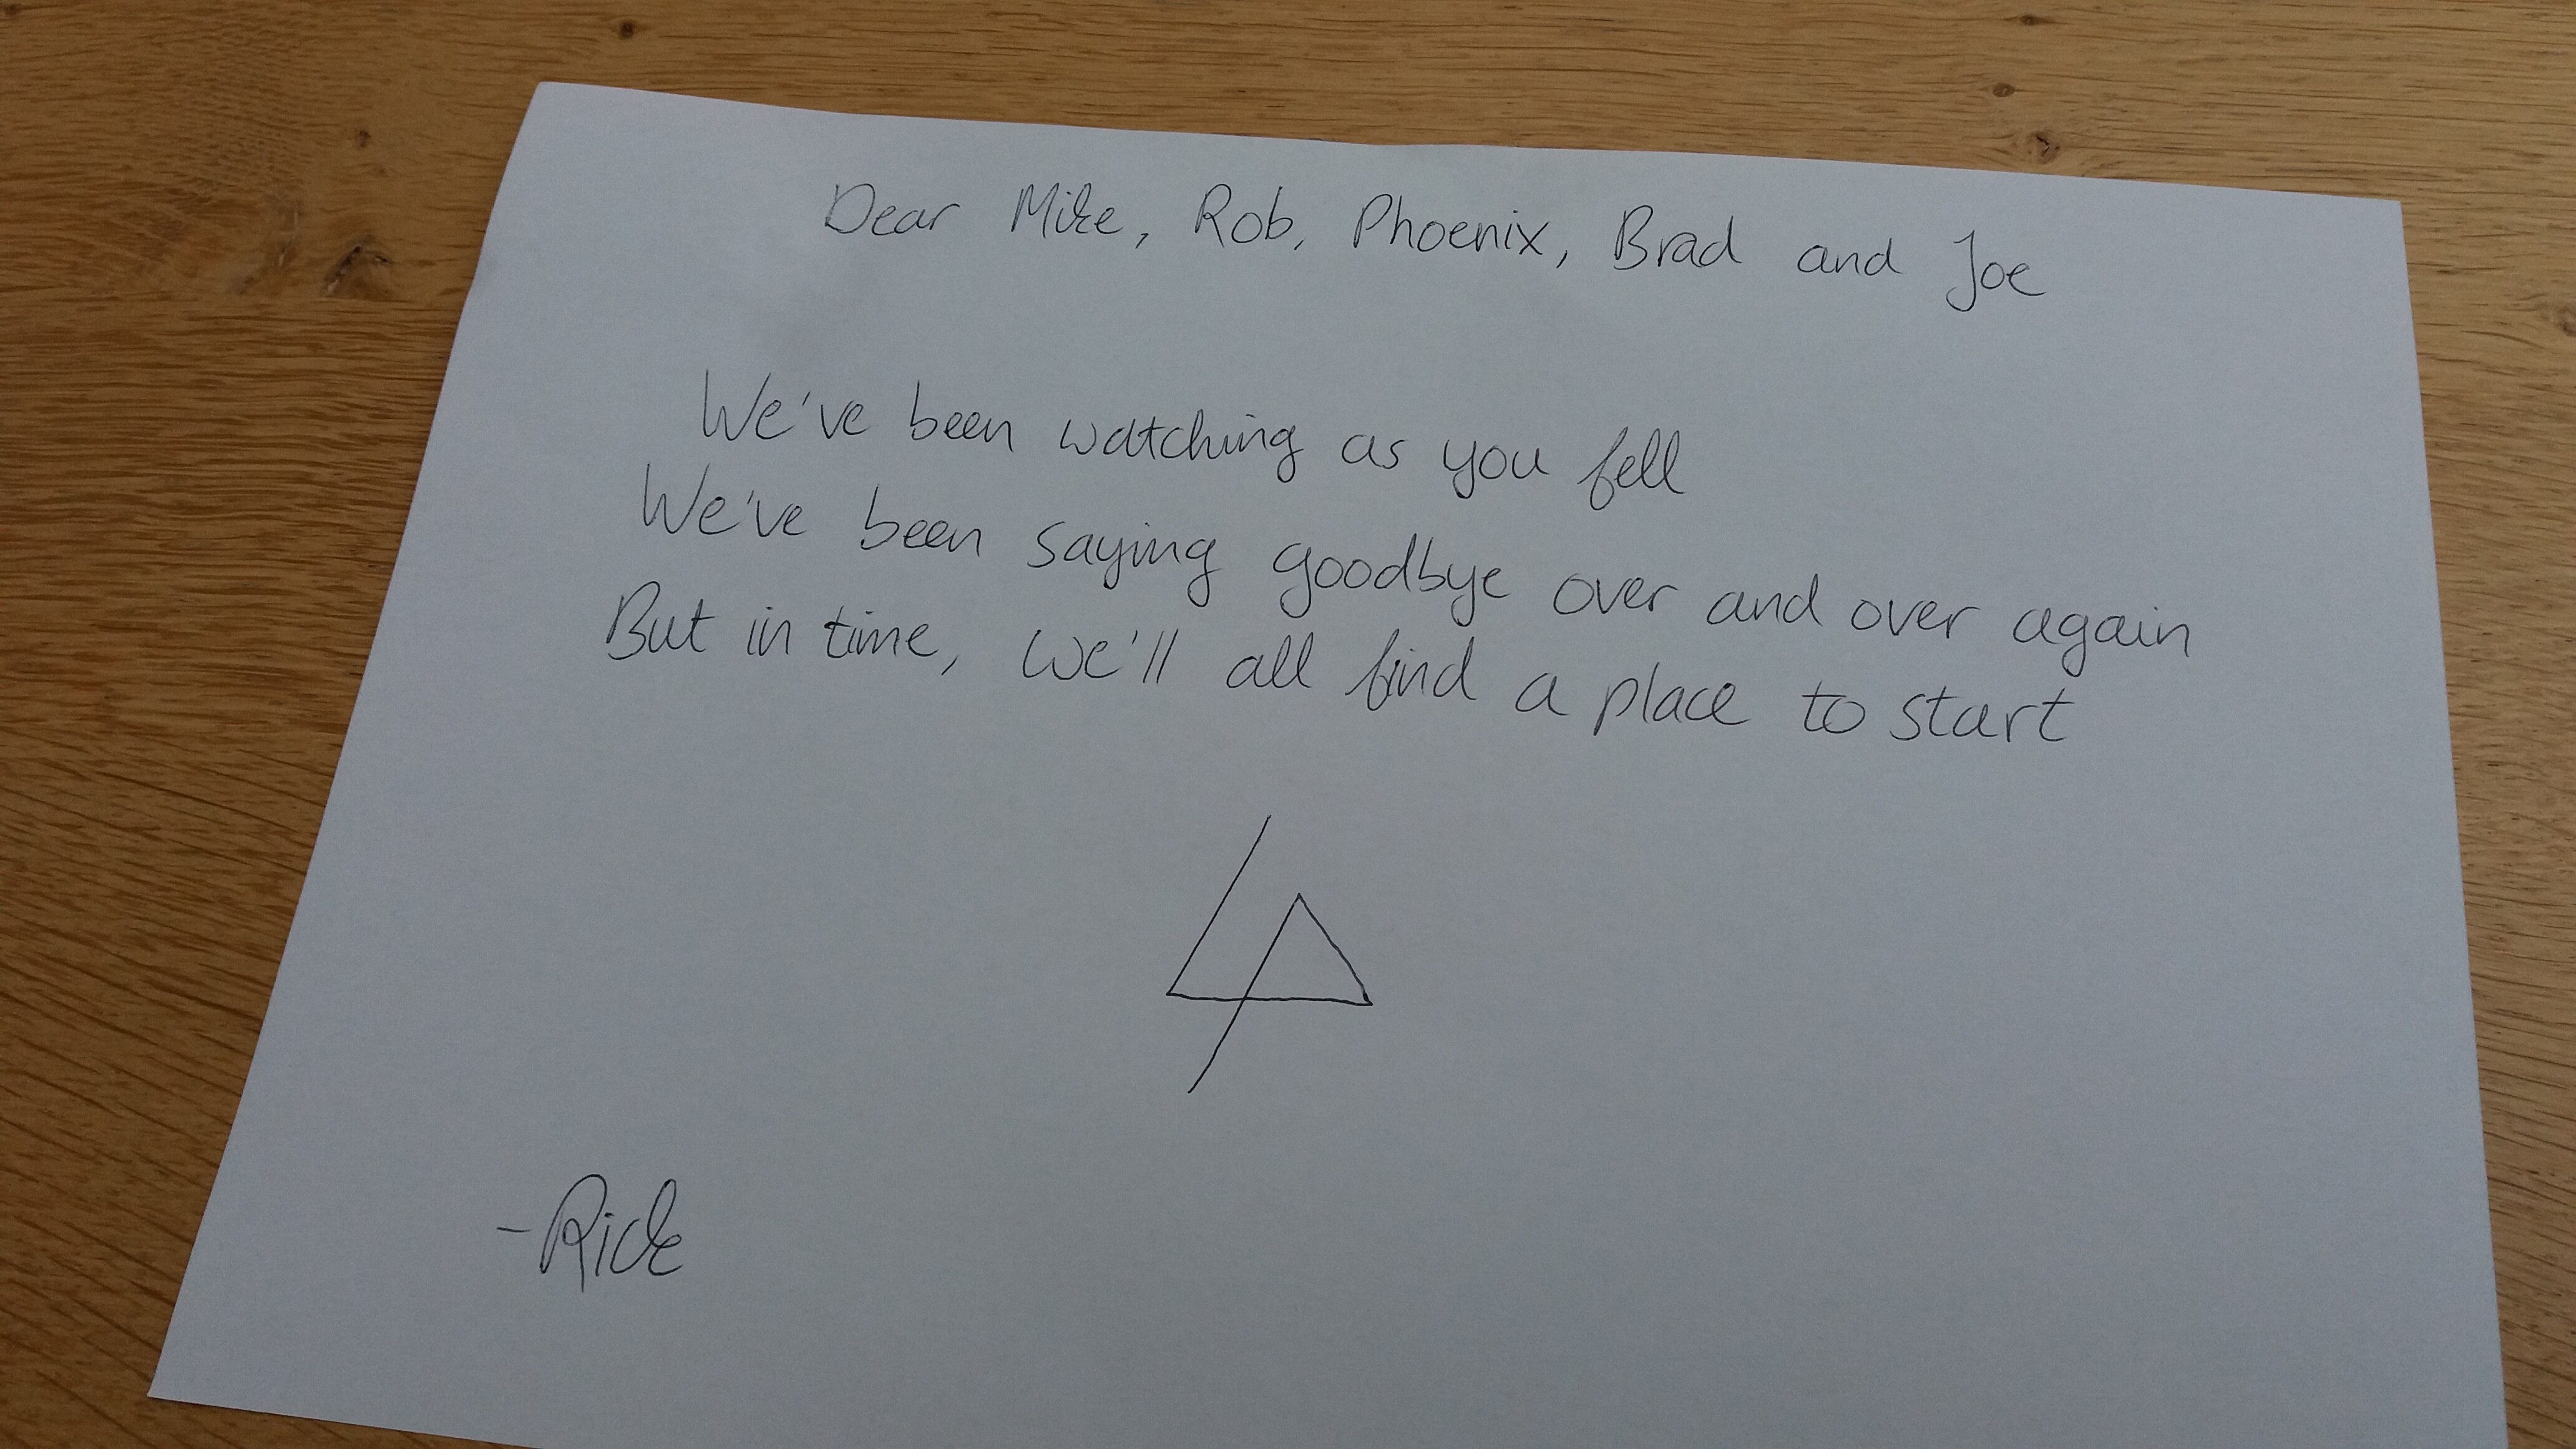 Dear Mike, Rob, Phoenix, Brad and Joe
We've been watching as you fell
We've been saying goodbye over and over again
But in time, we'll all find a place to start
-Rick